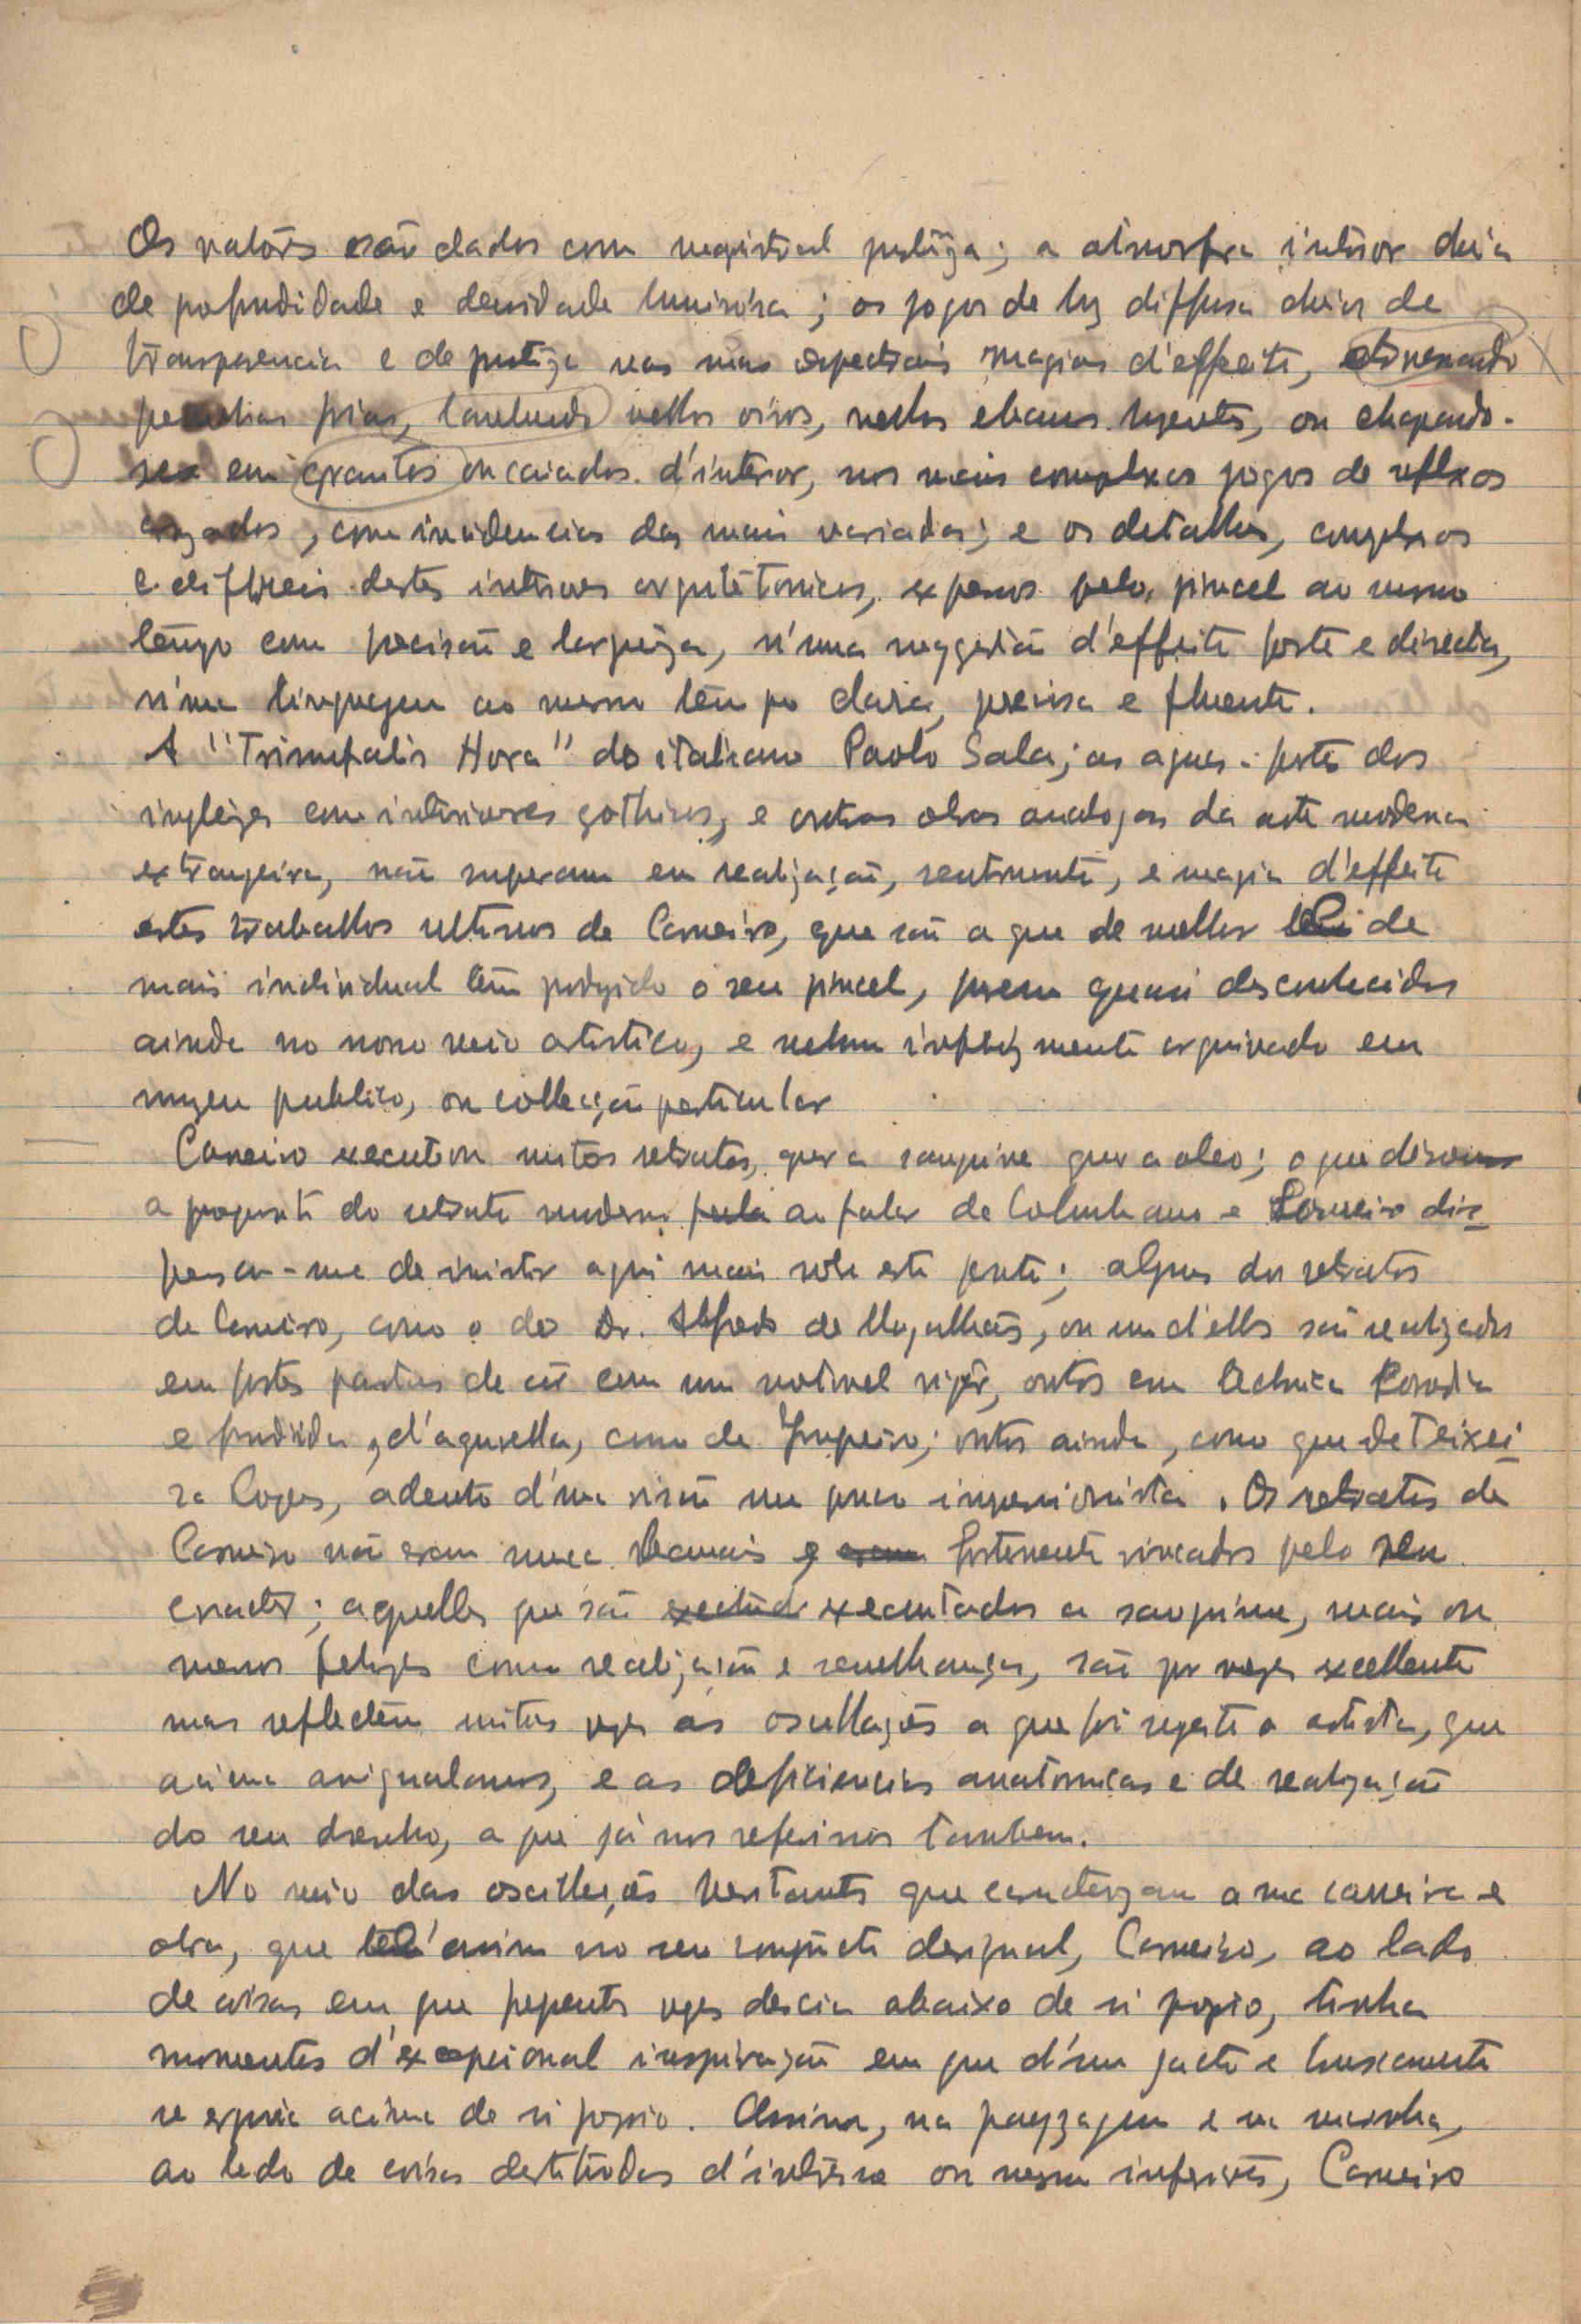 Os valôres são dados com magistral justêza; a atmosfera interior cheia
de profundidade e densidade luminósa; os jogos de luz diffusa cheios de
transparencia e de justêza nas suas espectraes magias d'effeito,
frias, lambendo velhos oiros, velhos ebanos lugentes, ou chapando-
se em granitos ou caiados d'interior, nos mais complexos jogos de reflexos
cruzados, com incidencias das mais variadas; e os detalhes, complexos
e difficeis destes interiores arquitétonicos, expressos pelo pincel ao mesmo
têmpo com precisão e larguêza, n'uma suggestão d'effeito forte e directa,
n'uma linguagem ao mesmo têmpo clara, precisa e fluente.
A "Triumphalis Hora" do italiano Paolo Sala; as aguas-fortes dos
inglêzes com interiores gothicos, e outras obras analogas da arte moderna
extrangeira, não superam em realização, sentimento, e magia d'effeito
estes trabalhos ultimos de Carneiro, que são o que de melhor e de
mais individual têm produzido o seu pincel, porem quasi desconhecidos
ainda no nosso meio artistico, e nehum infelizmente arquivado em
muzeu publico, ou collecção particular
Carneiro executou muitos retratos, quer a sanguine quer a oleo; o que dissemos
a proposito do retrato moderno ao falar de Columbano e Loureiro dis-
pensa-me de insistir aqui mais sobre este ponto; alguns dos retratos
de Carneiro, como o do Dr. Alfredo de Magalhães, ou um d'elles são realizados
em fortes pastas de côr com um notavel vigôr, outros em technica
e fundida, d'aguarella, como de Junqueiro; outros ainda, como que de Teixei-
ra Lopes, adentro d'uma visão um pouco impressionista. Os retratos de
Carneiro não eram nunca banaes e eram fortemente vincados pelo seu
caracter; aquelles que são executados a sanguine, mais ou
menos felizes como realização e semelhança, são por vezes excellentes
mas reflectem muitas vezes as oscillações a que foi sujeito o artista, que
acima assignalamos, e as deficiencias anatomicas e de realização
do seu desenho, a que já nos referimos tambem.
No meio das oscillações constantes que caracterizam a sua carreira e
obra, que é assim no seu conjuncto desigual, Carneiro, ao lado
de coisas em que frequentes vezes descia abaixo de si proprio, tinha
momentos d'excepcional inspiração em que d'um jacto e bruscamente
se erguia acima de si proprio. Assim, na payzagem e na marinha,
ao lado de coisas destituidas d'interesse ou mesmo inferiores, Carneiro